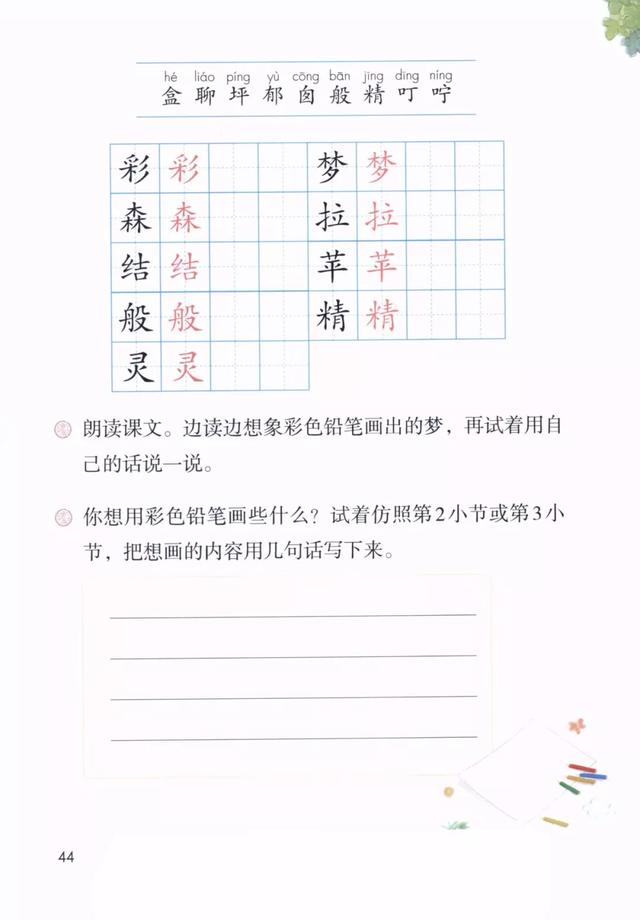 hé liáo píng yù cōng bān jīng dīng níng
盒 聊 坪 郁 囱 般 精 叮 咛
彩 彩 梦 梦
森 森 拉 拉
结 结 苹 苹
般 般 精 精
灵 灵
朗读课文。边读边想象彩色铅笔画出的梦，再试着用自
己的话说一说。
你想用彩色铅笔画些什么？试着仿照第2小节或第3小
节，把想画的内容用几句话写下来。
44